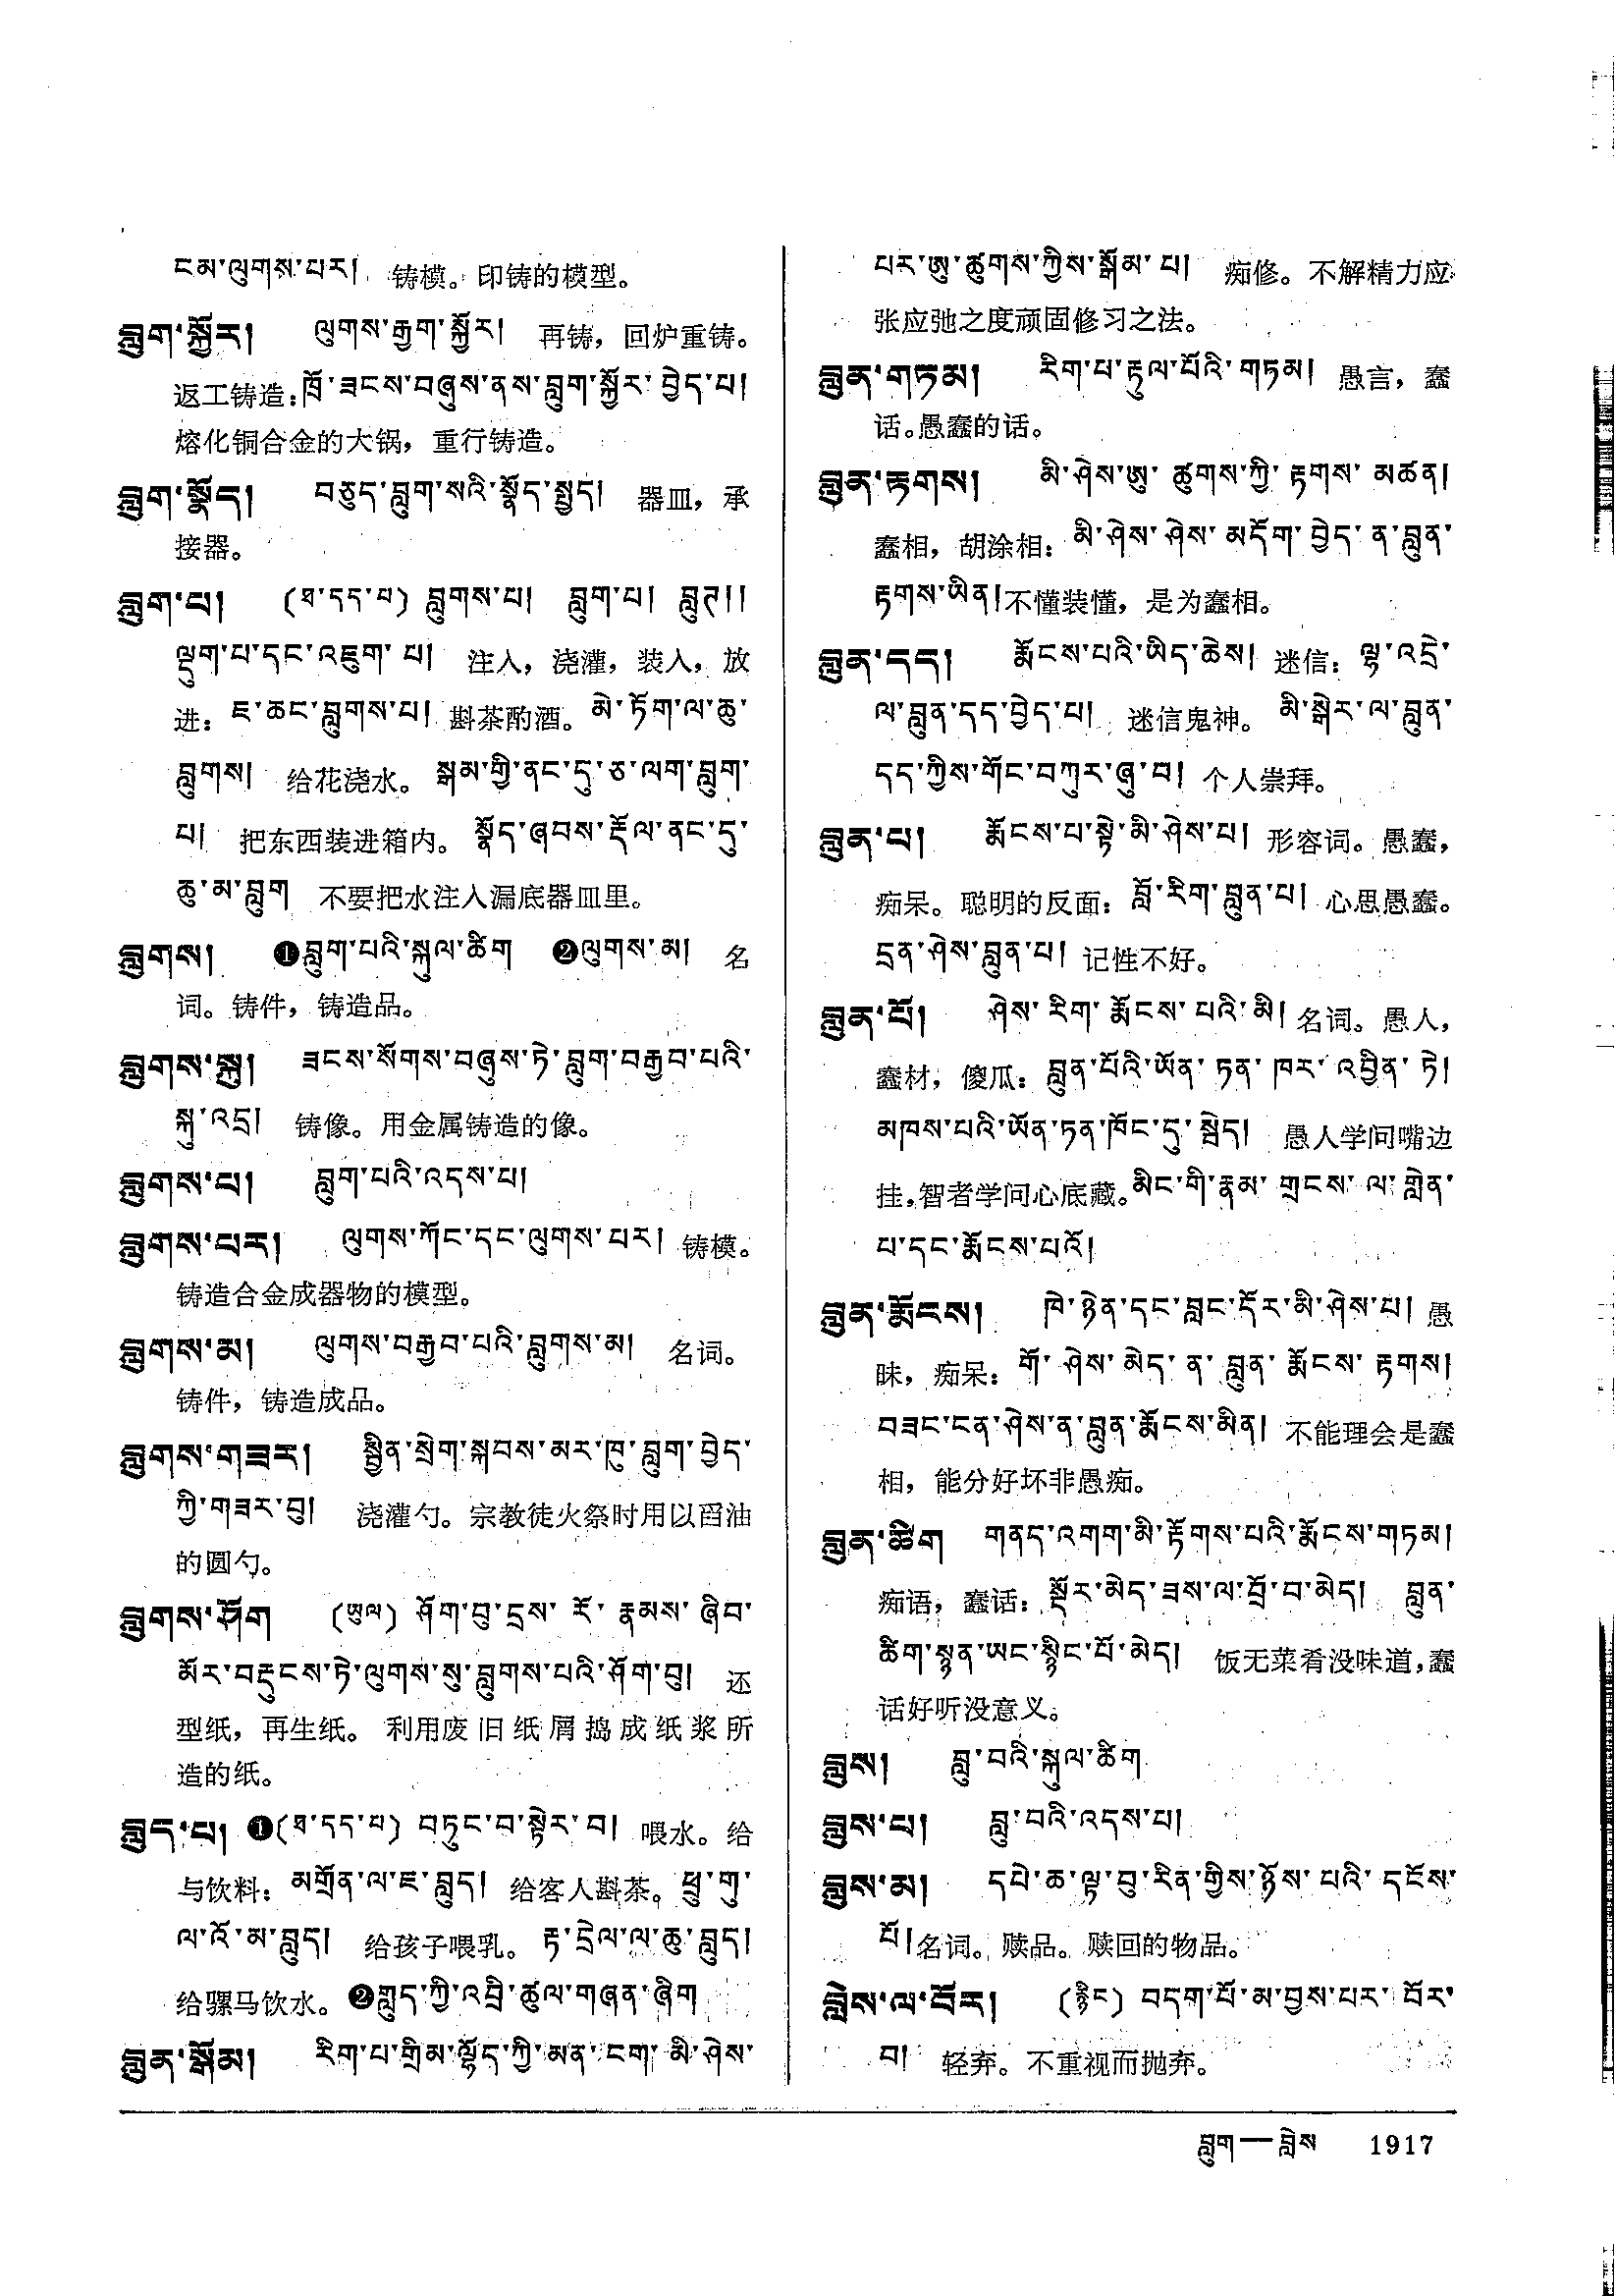 ངམ་ལུགས་པར། 铸模。印铸的模型。
བླུག་སྐྱོར། ལུགས་རྒྱག་སྐྱོར། 再铸，回炉重铸。
返工铸造：ཁྲོ་ཟངས་བཞུས་ནས་བླུག་སྐྱོར་བྱེད་པ།
熔化铜合金的大锅，重行铸造。
བླུག་སྣོད། བཅུད་བླུག་སའི་སྣོད་སྤྱད། 器皿，承
接器。
བླུག་པ། (ཐ་དད་པ) བླུགས་པ། བླུག་པ། བླུཊ།།
ལྡུག་པ་དང་འཇུག་པ། 注入，浇灌，装入，放
进：ཇ་ཆང་བླུགས་པ། 斟茶酌酒。མེ་ཏོག་ལ་ཆུ་
བླུགས། 给花浇水。སྒམ་གྱི་ནང་དུ་ཅ་ལག་བླུག་
པ། 把东西装进箱内。སྣོད་ཞབས་རྡོལ་ནང་དུ་
ཆུ་མ་བླུག 不要把水注入漏底器皿里。
བླུགས། ❶བླུག་པའི་སྐུལ་ཚིག ❷ལུགས་མ། 名
词。铸件，铸造品。
བླུགས་སྐུ། ཟངས་སོགས་བཞུས་ཏེ་བླུག་བརྒྱབ་པའི་
སྐུ་འདྲ། 铸像。用金属铸造的像。
བླུགས་པ། བླུག་པའི་འདས་པ།
བླུགས་པར། ལུགས་ཀོང་དང་ལུགས་པར། 铸模。
铸造合金成器物的模型。
བླུགས་མ། ལུགས་བརྒྱབ་པའི་བླུགས་མ། 名词。
铸件，铸造成品。
བླུགས་གཟར། སྦྱིན་སྲེག་སྐབས་མར་ཁུ་བླུག་བྱེད་
ཀྱི་གཟར་བུ། 浇灌勺。宗教徒火祭时用以舀油
的圆勺。
བླུགས་ཤོག (ཡུལ) ཤོག་བུ་དྲས་རོ་རྣམས་ཞིབ་
མོར་བརྡུངས་ཏེ་ལུགས་སུ་བླུགས་པའི་ཤོག་བུ། 还
型纸，再生纸。利用废旧纸屑捣成纸浆所
造的纸。
བླུད་པ། ❶(ཐ་དད་པ) བཏུང་བ་སྟེར་བ། 喂水。给
与饮料：མགྲོན་ལ་ཇ་བླུད། 给客人斟茶。ཕྲུ་གུ་
ལ་འོ་མ་བླུད། 给孩子喂乳。རྟ་དྲེལ་ལ་ཆུ་བླུད།
给骡马饮水。❷གླུད་ཀྱི་འབྲི་ཚུལ་གཞན་ཞིག
བླུན་སྒོམ། རིག་པ་གྲིམ་ལྷོད་ཀྱི་མན་ངག་མི་ཤེས་
པར་ཨུ་ཚུགས་ཀྱིས་སྒོམ་པ། 痴修。不解精力应
张应弛之度顽固修习之法。
བླུན་གཏམ། རིག་པ་རྟུལ་པོའི་གཏམ། 愚言，蠢
话。愚蠢的话。
བླུན་རྟགས། མི་ཤེས་ཨུ་ཚུགས་ཀྱི་རྟགས་མཚན།
蠢相，胡涂相：མི་ཤེས་ཤེས་མདོག་བྱེད་ན་བླུན་
རྟགས་ཡིན།不懂装懂，是为蠢相。
བླུན་དད། རྨོངས་པའི་ཡིད་ཆེས། 迷信：ལྷ་འདྲེ་
ལ་བླུན་དད་བྱེད་པ། 迷信鬼神。མི་སྒེར་ལ་བླུན་
དད་ཀྱིས་གོང་བཀུར་ཞུ་བ། 个人崇拜。
བླུན་པ། རྨོངས་པ་སྟེ་མི་ཤེས་པ། 形容词。愚蠢，
痴呆。聪明的反面：བློ་རིག་བླུན་པ། 心思愚蠢。
དྲན་ཤེས་བླུན་པ། 记性不好。
བླུན་པོ། ཤེས་རིག་རྨོངས་པའི་མི། 名词。愚人，
蠢材，傻瓜：བླུན་པོའི་ཡོན་ཏན་ཁར་འབྱིན་ཏེ།
མཁས་པའི་ཡོན་ཏན་ཁོང་དུ་སྦེད། 愚人学问嘴边
挂，智者学问心底藏。མིང་གི་རྣམ་གྲངས་ལ་གླེན་
པ་དང་རྨོངས་པའོ།
བླུན་རྨོངས། ཁེ་ཉེན་དང་བླང་དོར་མི་ཤེས་པ། 愚
昧，痴呆：གོ་ཤེས་མེད་ན་བླུན་རྨོངས་རྟགས།
བཟང་ངན་ཤེས་ན་བླུན་རྨོངས་མིན། 不能理会是蠢
相，能分好坏非愚痴。
བླུན་ཚིག གནད་འགག་མི་རྟོགས་པའི་རྨོངས་གཏམ།
痴语，蠢话：སྡོར་མེད་ཟས་ལ་བྲོ་བ་མེད། བླུན་
ཚིག་སྙན་ཡང་སྙིང་པོ་མེད། 饭无菜肴没味道，蠢
话好听没意义。
བླུས། བླུ་བའི་སྐུལ་ཚིག
བླུས་པ། བླུ་བའི་འདས་པ།
བླུས་མ། དཔེ་ཆ་ལྟ་བུ་རིན་གྱིས་ཉོས་པའི་དངོས་
པོ།名词。赎品。赎回的物品。
བླེས་ལ་བོར། (རྙིང) བདག་པོ་མ་བྱས་པར་བོར་
བ། 轻弃。不重视而抛弃。
བླུག — བླེས 1917